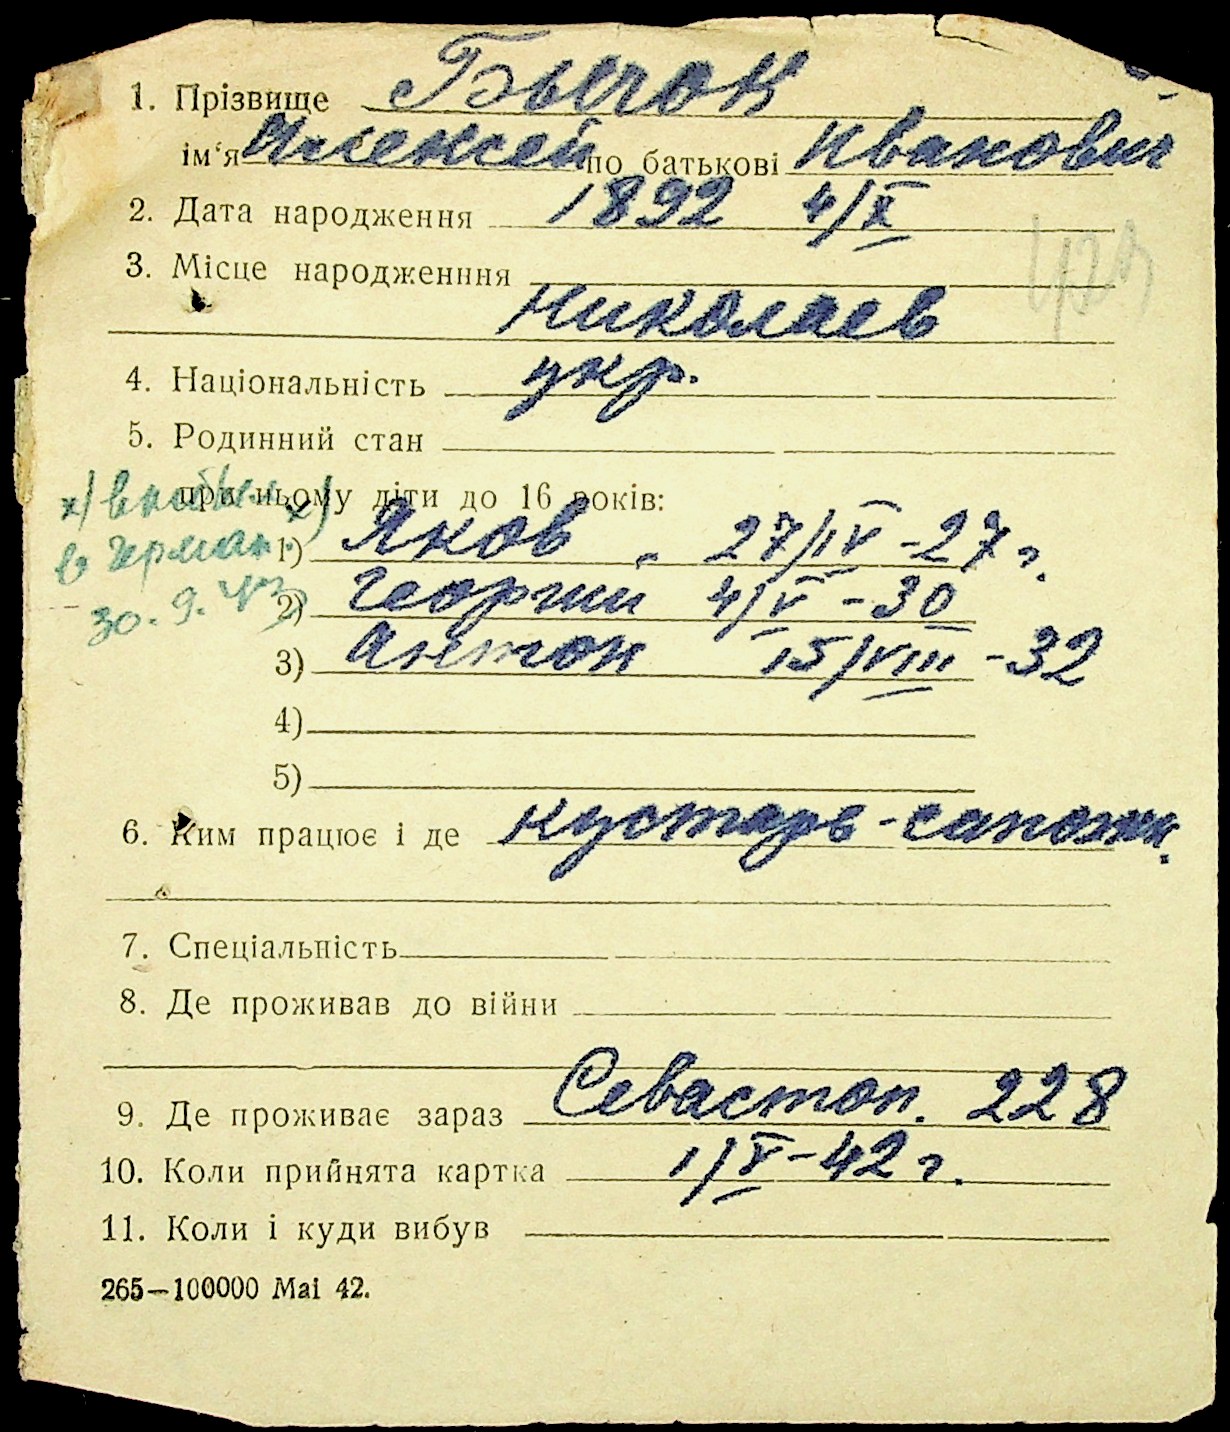 1. Прізвище Бычок
ім'я Алексей по батькові Иванович
2. Дата народження 1892 4/X
3. Місце народженння
Николаев
4. Національність укр.
5. Родинний стан
при ньому діти до 16 років:
х) выбыл х)
в Герман.
30.9.43
1) Яков. 27/IV-27 г.
2) Георгий 4/V-30
3) Антон 15/VIII-32
4)
5)
6. Ким працює і де кустарь-сапожн.
7. Спеціальність
8. Де проживав до війни
9. Де проживає зараз Севастоп. 228
10. Коли прийнята картка 1/V-42 г.
11. Коли і куди вибув
265—100000 Mai 42.